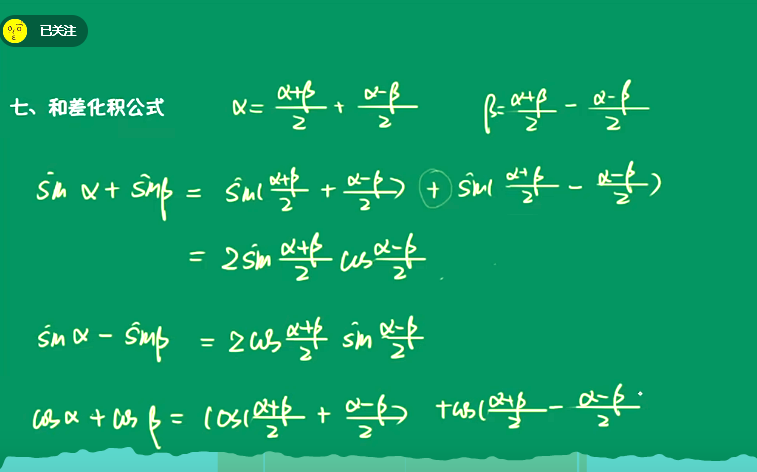 已关注
七、和差化积公式 α=(α+β)/2+(α-β)/2 β=(α+β)/2-(α-β)/2
sinα+sinβ=sin((α+β)/2+(α-β)/2)+sin((α+β)/2-(α-β)/2)
=2sin(α+β)/2 cos(α-β)/2
sinα-sinβ=2cos(α+β)/2 sin(α-β)/2
cosα+cosβ=cos((α+β)/2+(α-β)/2)+cos((α+β)/2-(α-β)/2